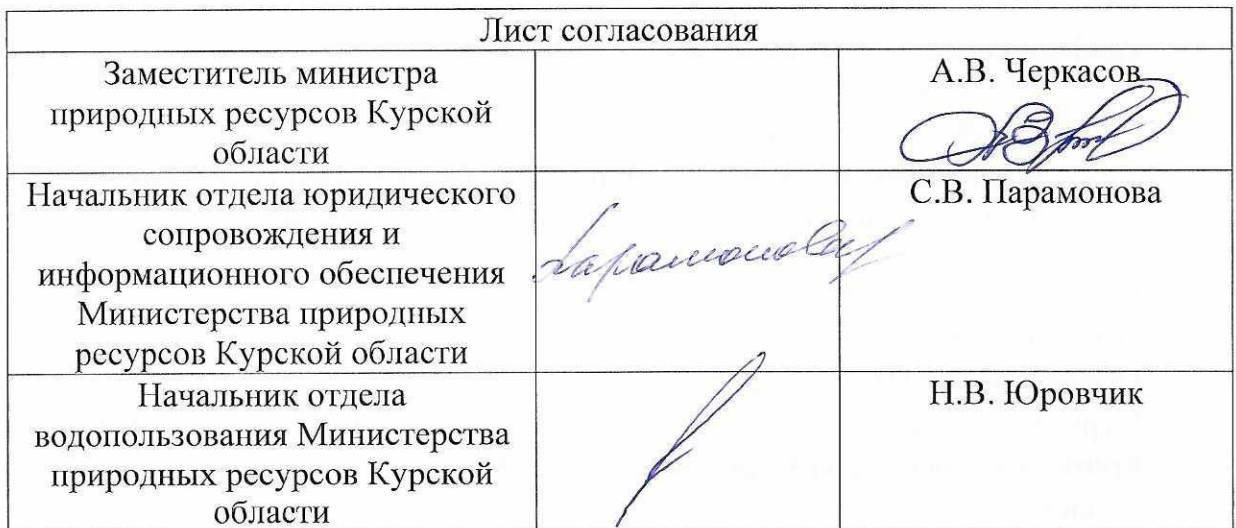 Лист согласования
Заместитель министра
природных ресурсов Курской
области
А.В. Черкасов
Начальник отдела юридического
сопровождения и
информационного обеспечения
Министерства природных
ресурсов Курской области
С.В. Парамонова
Начальник отдела
водопользования Министерства
природных ресурсов Курской
области
Н.В. Юровчик